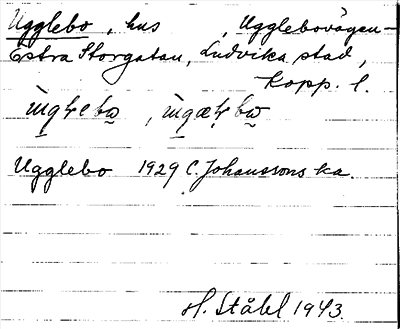 Ugglebo, hus , Ugglebovägen –
Östra Storgatan, Ludvika stad,
Kopp. l.
Ugglebo 1929 C. Johanssons ka.
H. Ståhl 1943.